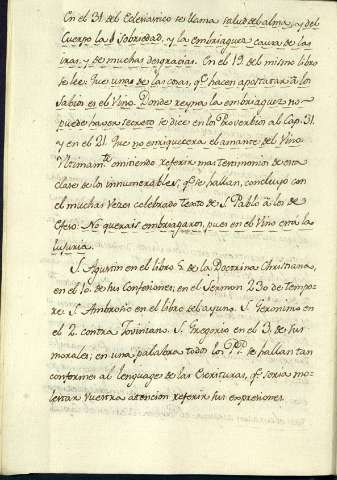 En el 31 del Eclesiastico se llama salud del alma, y del
Cuerpo la Sobriedad, y la embriaguez causa de las
iras, y de muchas desgracias. En el 19 del mismo libro
se lee: Que unas de las cosas, qe hacen apostatar a los
Sabios es el Vino. Donde reyna la embriaguez no
puede haver secreto se dice en los Proverbios al Cap. 31.
y en el 21. Que no enriquecera el amante del Vino.
Ultimamte omitiendo referir mas testimonios de esta
clase de los innumerables, qe se hallan, concluyo con
el muchas vezes celebrado Texto de S. Pablo â los de
Efeso: No querais embriagaros, pues en el Vino está la
luxuria.
S. Agustin en el libro 4 de la Doctrina Christiana,
en el 10. de sus Confesiones, en el Sermon 230 de Tempo-
re: S. Ambrosio en el libro del ayuno. S. Geronimo en
el 2. contra Joviniano. S. Gregorio en el 3. de sus
morales; en una palabra todos los PP. se hallan tan
conformes al lenguage de las Escrituras, qe seria mo-
lestar vuestra atencion referir sus expresiones.